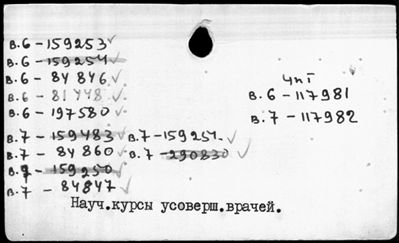 в.6 - 159253
в.6 - 159254
в.6 - 84846
в.6 - 81448
в.6 - 197580
в.7 - 159483
в.7 - 84860
в.7 - 159250
в.7 - 84847
в.7 - 159251
в.7 - 290830
чпі
в.6 - 117981
в.7 - 117982
Науч.курсы усоверш.врачей.